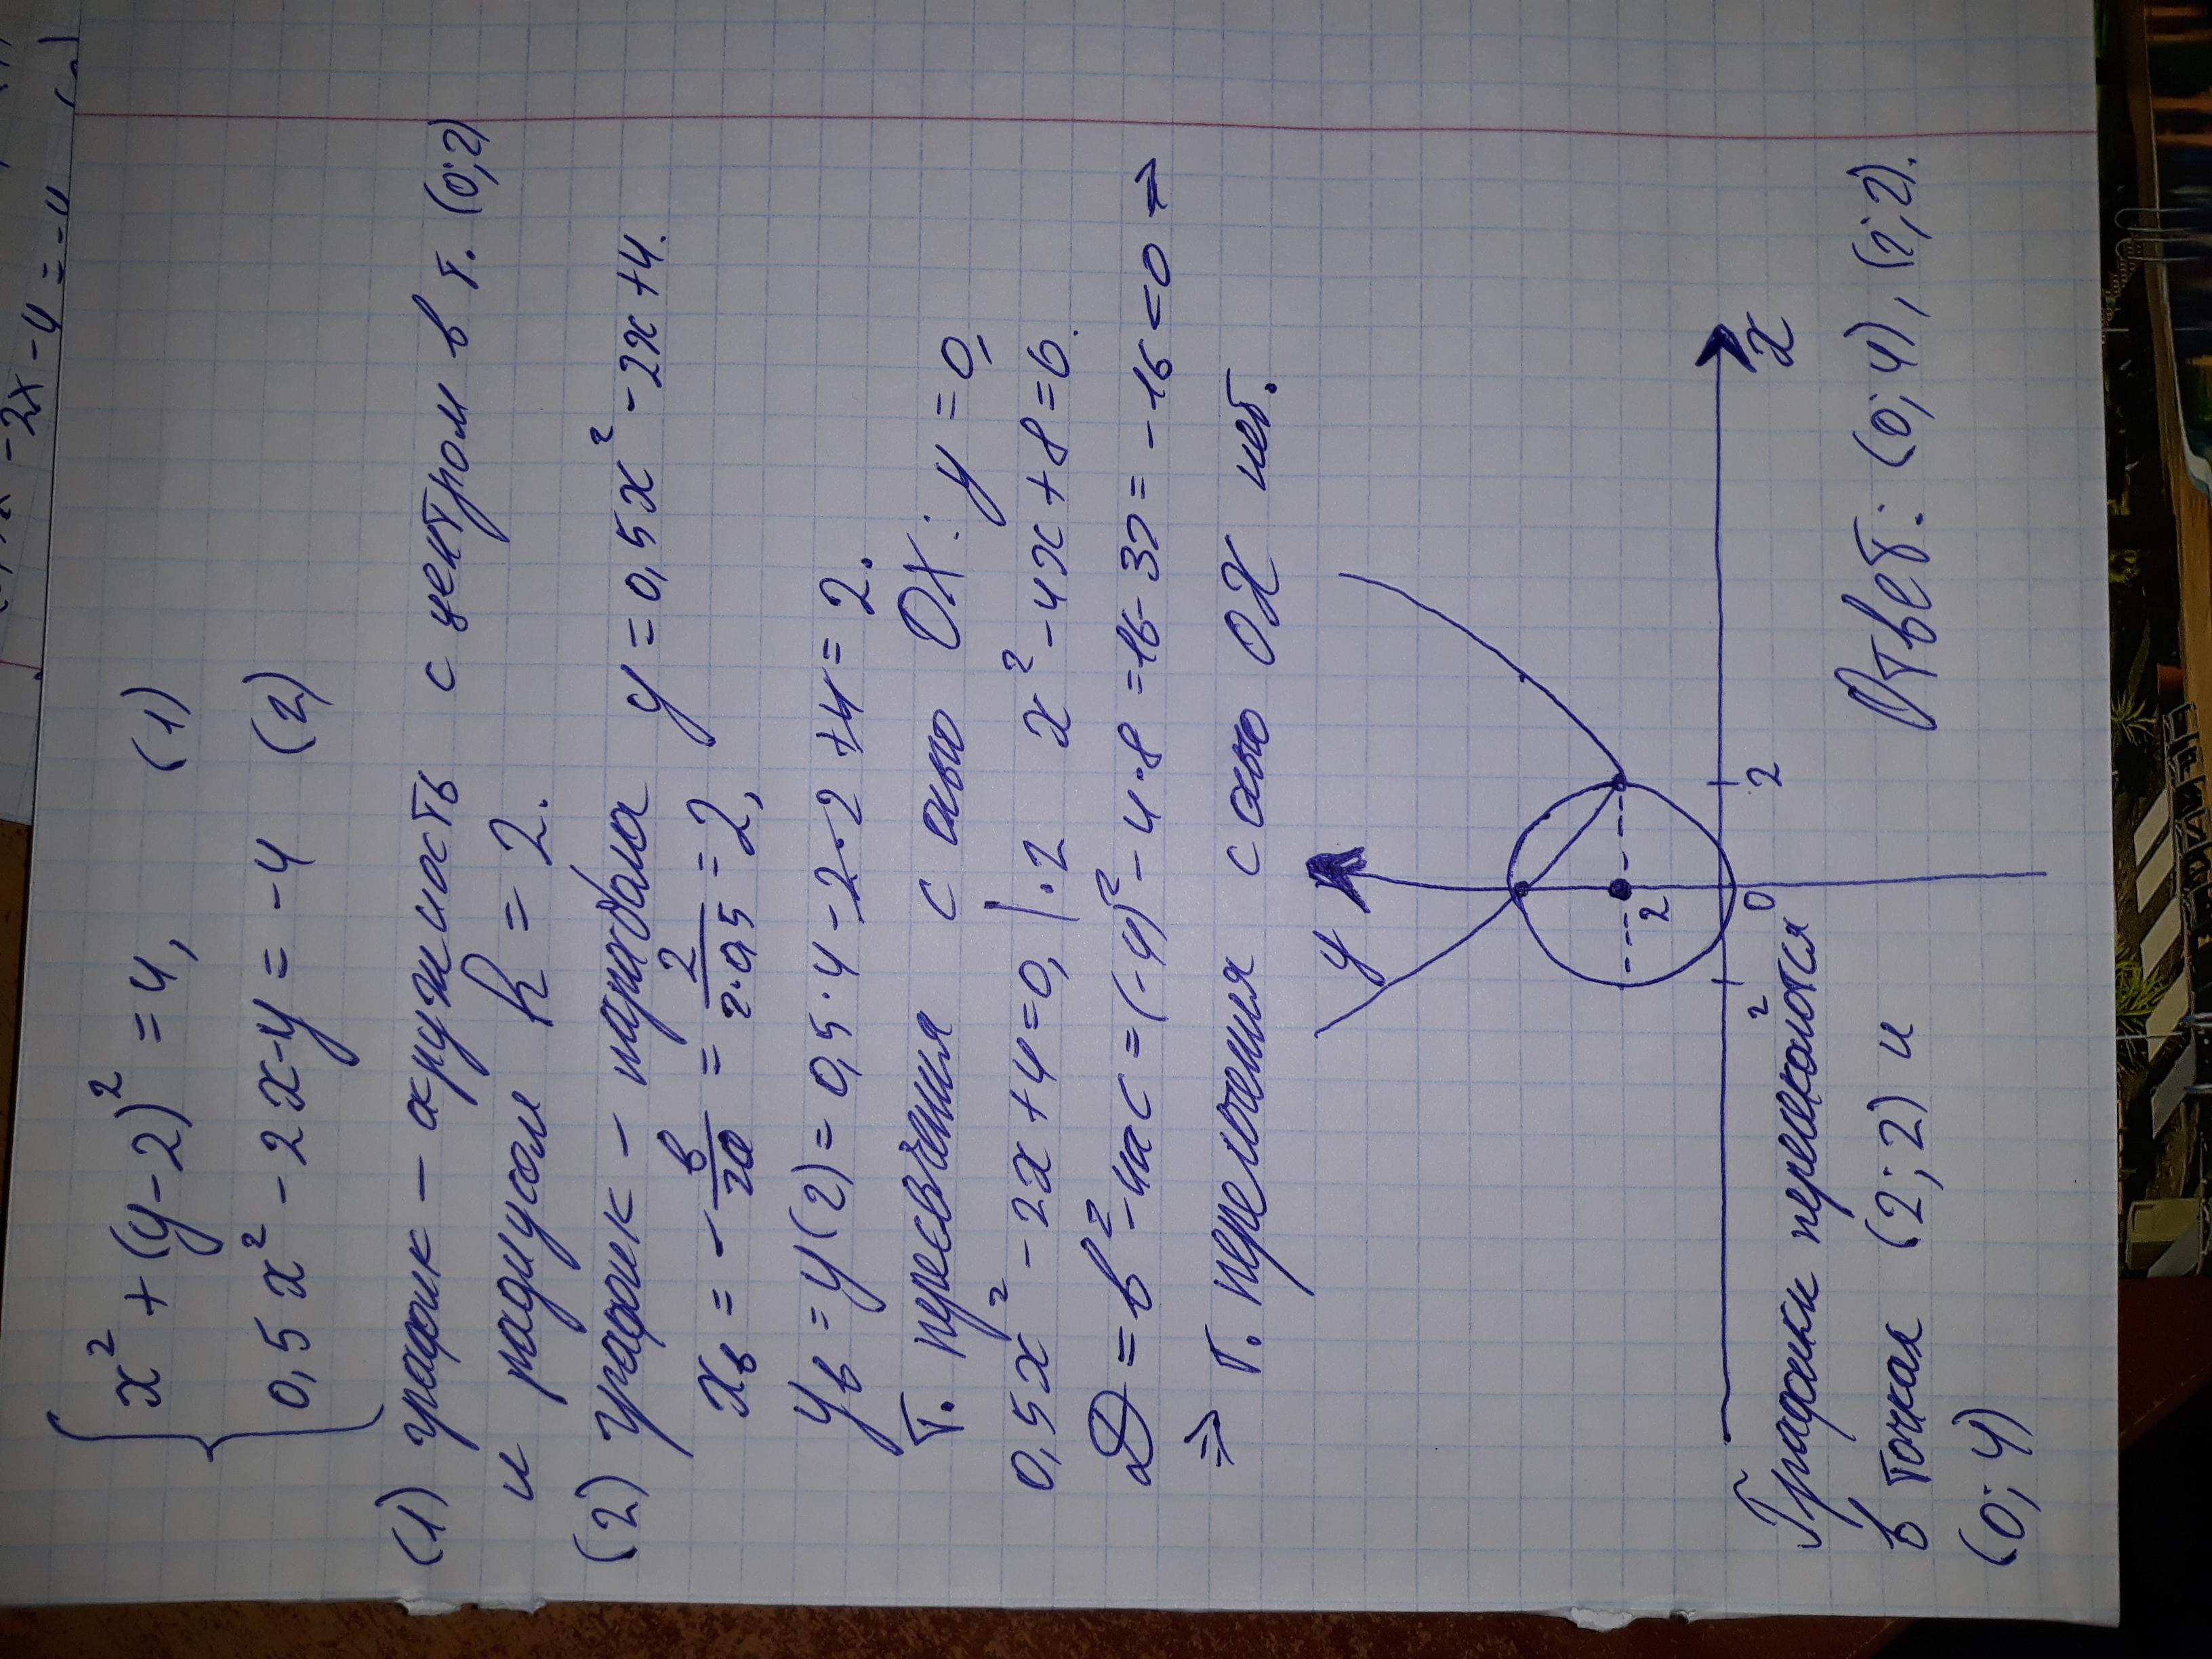 -2x-4=-4
{ x² + (y-2)² = 4, (1)
0,5x² - 2x-y = -4 (2)
(1) график – окружность с центром в т. (0;2)
и радиусом R = 2.
(2) график – парабола y = 0,5x² - 2x+4.
xв = - в/2a = 2/2·0,5 = 2,
yв = y(2) = 0,5·4 - 2·2 + 4 = 2.
Т. пересечения с осью OX: y = 0,
0,5x² - 2x + 4 = 0, |·2 x² - 4x + 8 = 0.
D = в² - 4ac = (-4)² - 4·8 = 16 - 32 = -16 < 0 ⇒
⇒ т. пересечения с осью OX нет.
y
2
-2 0 2 x
Графики пересекаются
в точках (2; 2) и
(0; 4)
Ответ: (0; 4), (2; 2).